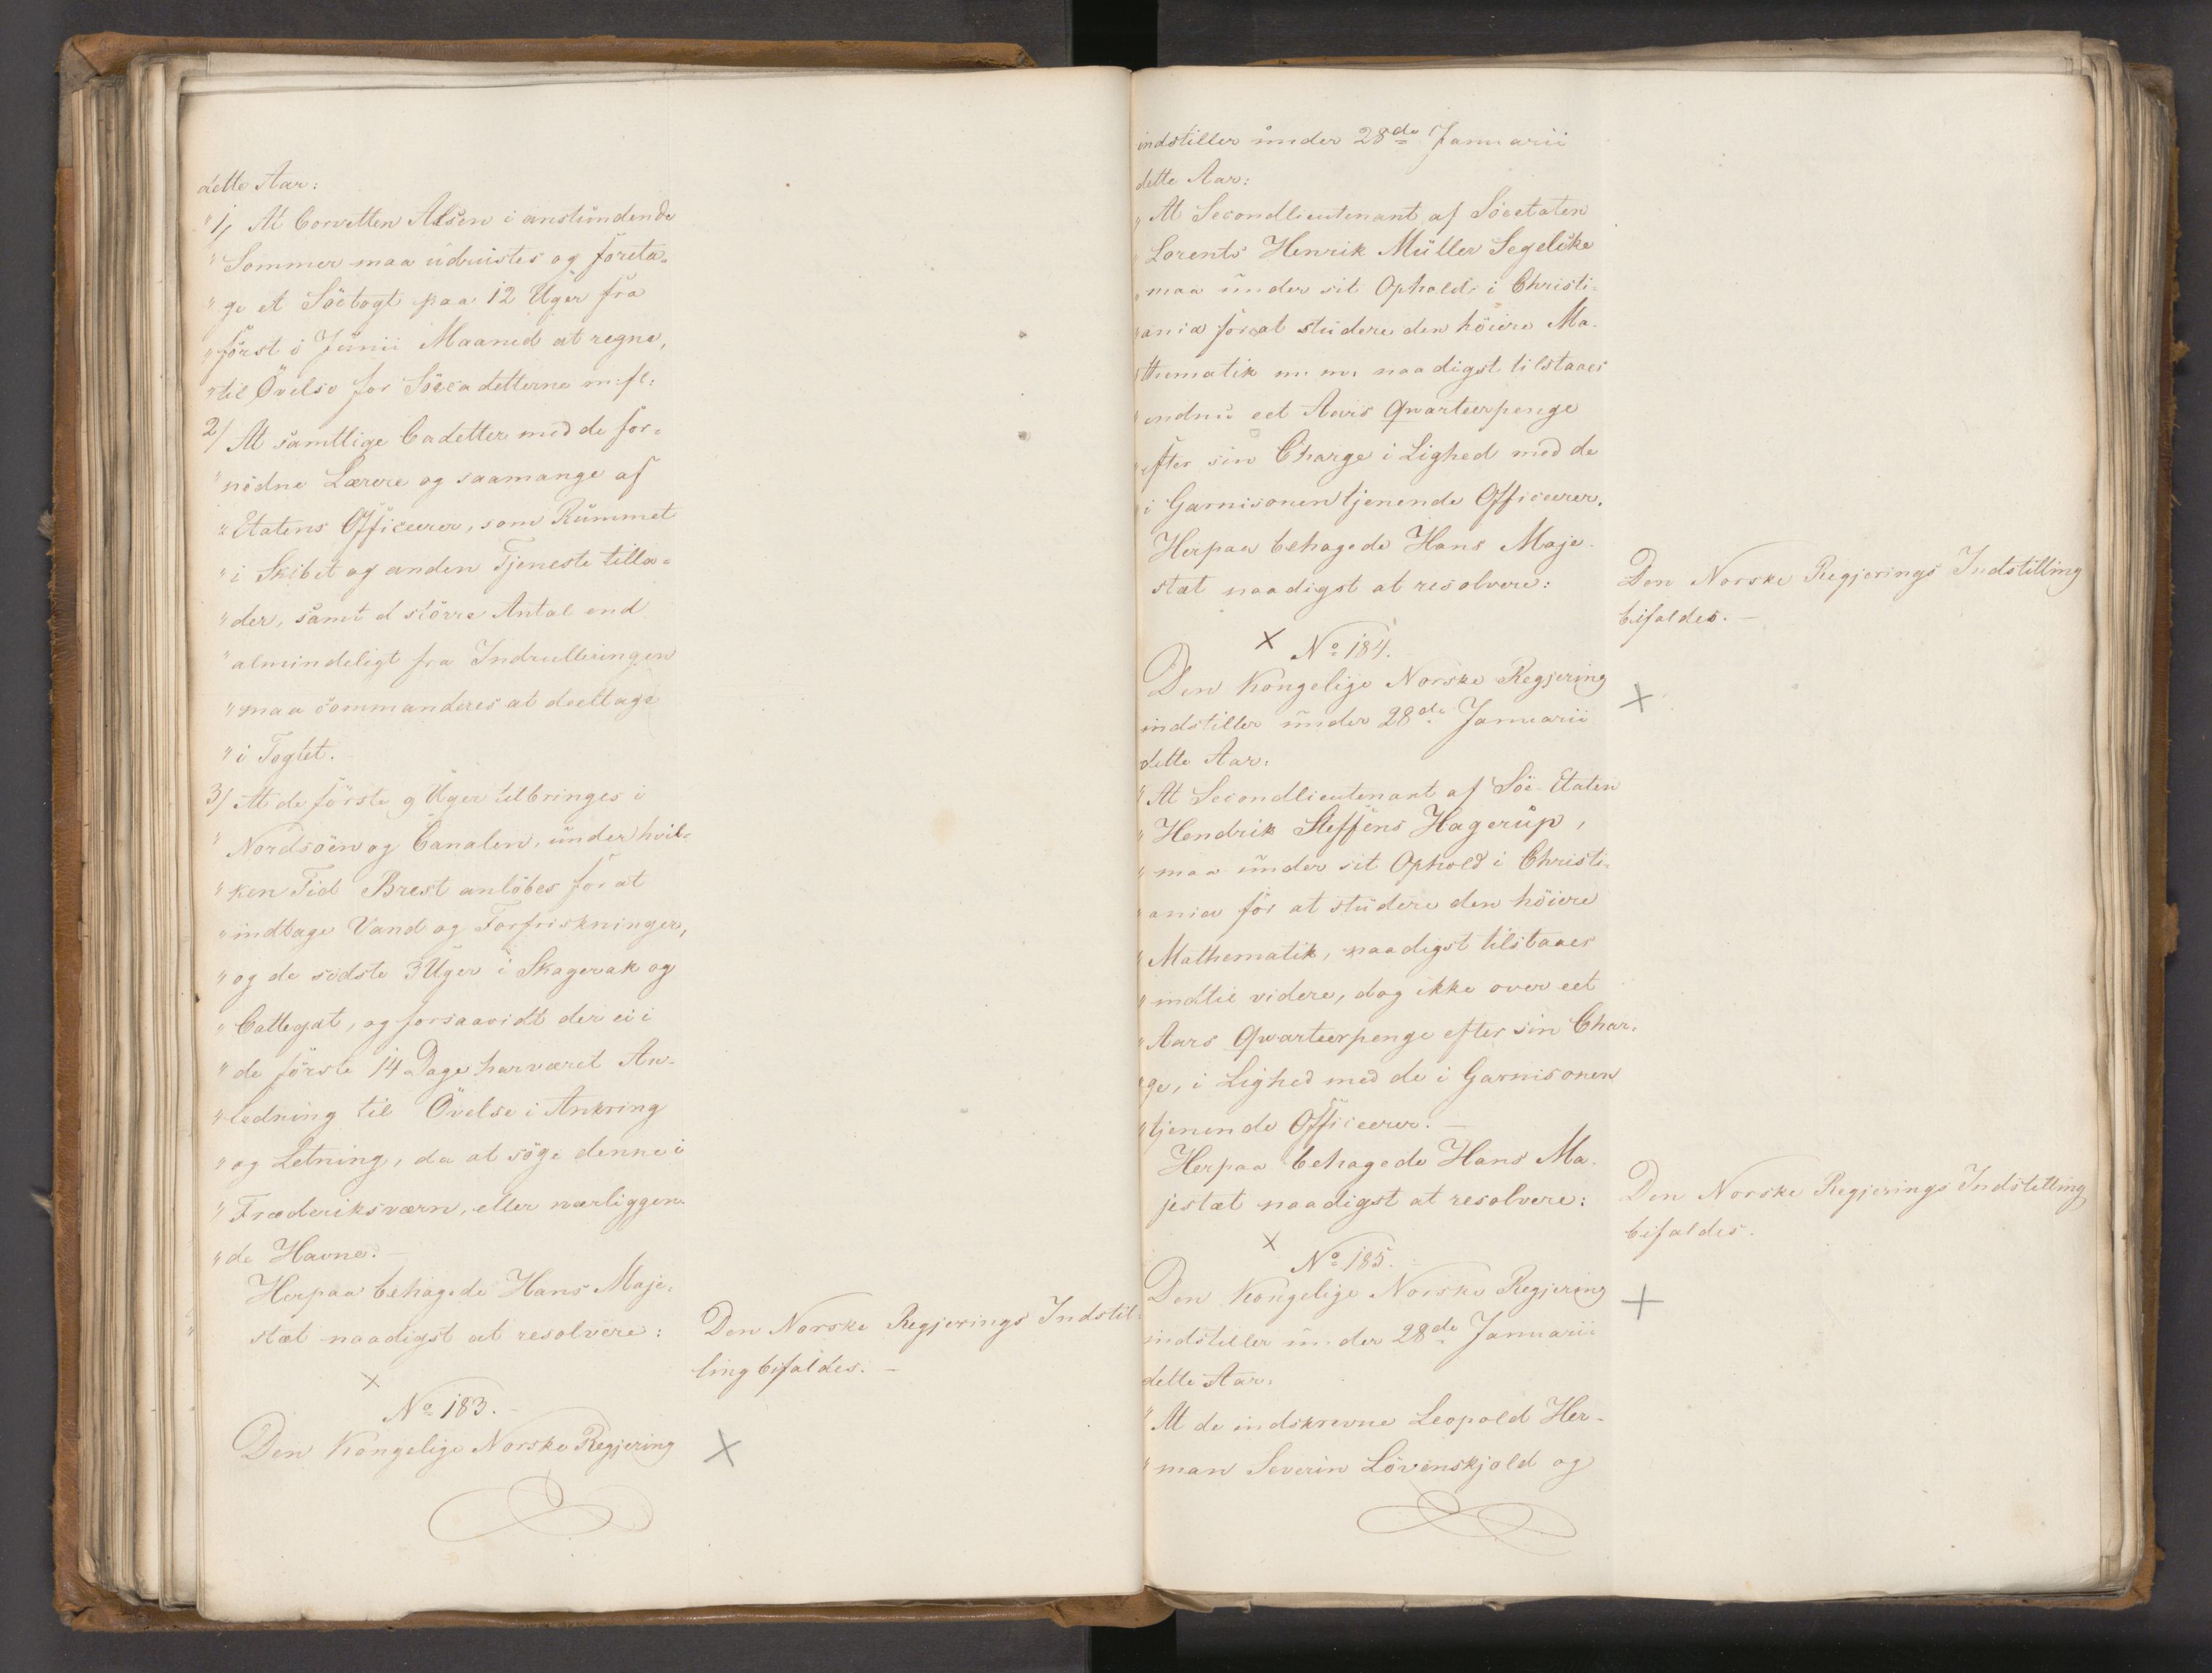 dette Aar:
"1/ At Corvetten Alsen i anstundende
"Sommer maa udrustes og foreta=
"ge et Söetogt paa 12 Uger fra
"först i Junii Maaned at regne,
"til Övelse for Söecadetterne m: fl:
2/ At samtlige Cadetter med de for=
"nödne Lærere og saamange af
"Etatens Officeerer, som Rummet
"i Skibet og anden Tjeneste tilla=
"der, samt et större Antal end
"almindeligt fra Indrulleringen
"maa commanderes at deeltage
"i Togtet.
3/ At de förste 9 Uger tilbringes i
"Nordsöen og Canalen, under hvil=
"ken Tid Brest anlöbes for at
"indtage Vand og Forfriskninger,
"og de sidste 3 Uger i Skagerak og
"Cattegat, og forsaavidt der ei i
"de förste 14 Dage har været An=
"ledning til Övelse i Ankring
"og Letning, da at söge denne i
"Fræderiksværn, eller nærliggen=
"de Havne. —
Herpaa behagede Hans Maje=
stæt naadigst at resolvere:
Den Norske Regjerings Indstil=
ling bifaldes. —
×
No 183.
Den Kongelige Norske Regjering
×
indstiller under 28de Januarii
dette Aar:
"At Secondlieutenant af Söeetaten
"Lorents Henrik Müller Segelcke
"maa under sit Ophold i Christi=
"ania for at studere den höiere Ma=
"thematik m. m. naadigst tilstaaes
"endnu eet Aars Qvarteerpenge
"efter sin Charge i Lighed med de
"i Garnisonen tjenende Officeerer.
Herpaa behagede Hans Maje=
stæt naadigst at resolvere:
Den Norske Regjerings Indstilling
bifaldes. —
× No 184.
Den Kongelige Norske Regjering
×
indstiller under 28de Januarii
dette Aar:
"At Secondlieutenant af Söe-Etaten
"Hendrik Steffens Hagerup,
"maa under sit Ophold i Christi=
"ania for at studere den höiere
"Mathematik, naadigst tilstaaes
"indtil videre, dog ikke over eet
"Aars Qvarteerpenge efter sin Char=
"ge, i Lighed med de i Garnisonen
"tjenende Officeerer. —
Herpaa behagede Hans Ma=
jestæt naadigst at resolvere:
Den Norske Regjerings Indstilling
bifaldes.
×
No 185.
Den Kongelige Norske Regjering
×
indstiller under 28de Januarii
dette Aar:
"At de indskrevne Leopold Her=
"man Severin Lövenskjold og